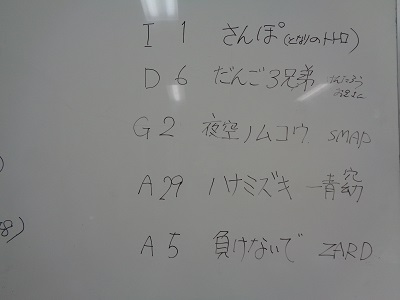 I 1 さんぽ(となりのトトロ)
D 6 だんご3兄弟
G 2 夜空ノムコウ SMAP
A 29 ハナミズキ 一青窈
A 5 負けないで ZARD
8)